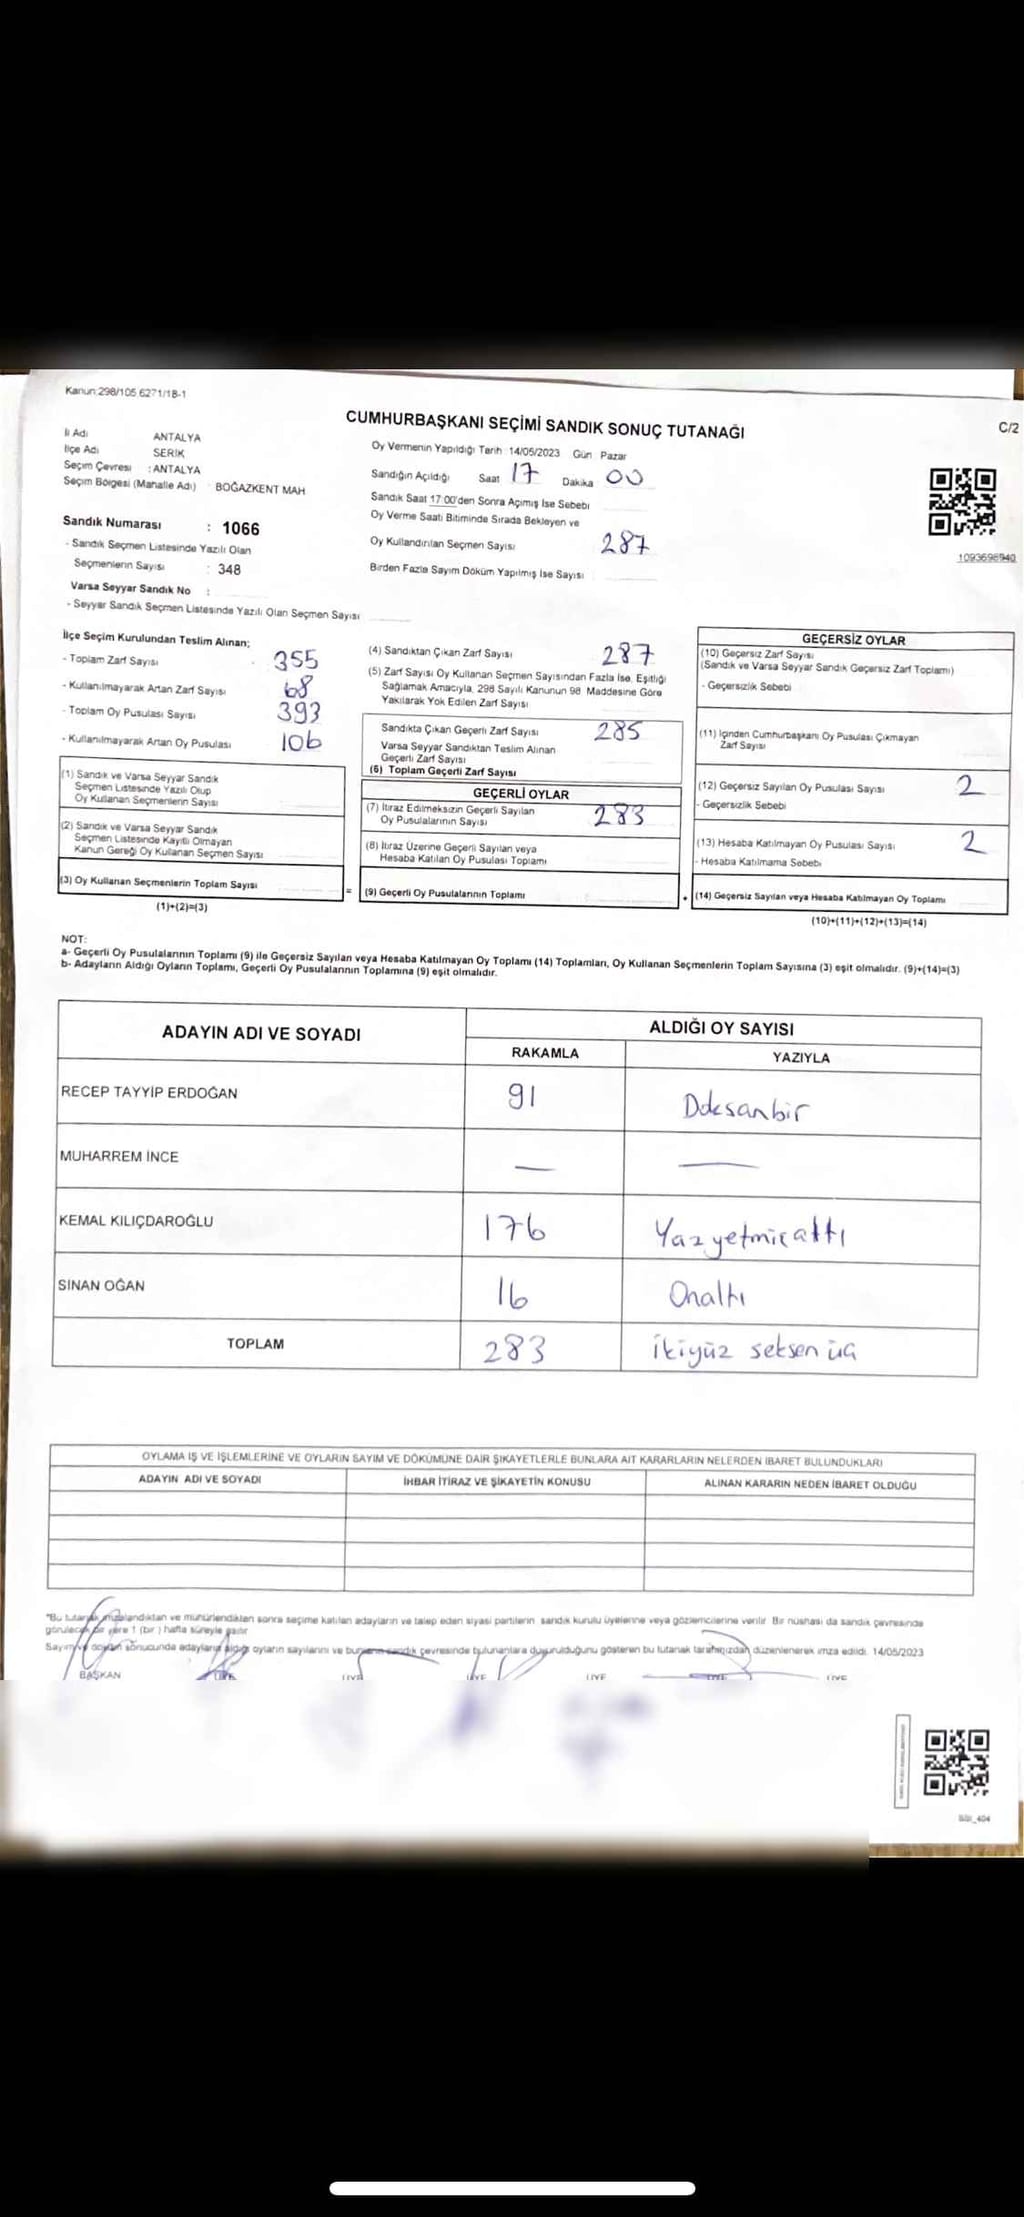 Kanun:298/105 6271/18-1
CUMHURBAŞKANI SEÇİMİ SANDIK SONUÇ TUTANAĞI
C/2
İl Adı ANTALYA
İlçe Adı SERİK
Seçim Çevresi : ANTALYA
Seçim Bölgesi (Mahalle Adı) BOĞAZKENT MAH
Sandık Numarası : 1066
- Sandık Seçmen Listesinde Yazılı Olan
Seçmenlerin Sayısı : 348
Varsa Seyyar Sandık No :
- Seyyar Sandık Seçmen Listesinde Yazılı Olan Seçmen Sayısı
Oy Vermenin Yapıldığı Tarih 14/05/2023 Gün Pazar
Sandığın Açıldığı Saat 17 Dakika 00
Sandık Saat 17:00'den Sonra Açımış İse Sebebi
Oy Verme Saati Bitiminde Sırada Bekleyen ve
Oy Kullandırılan Seçmen Sayısı 287
Birden Fazla Sayım Döküm Yapılmış İse Sayısı
1093698940
İlçe Seçim Kurulundan Teslim Alınan;
- Toplam Zarf Sayısı 355
- Kullanılmayarak Artan Zarf Sayısı 68
- Toplam Oy Pusulası Sayısı 393
- Kullanılmayarak Artan Oy Pusulası 106
(1) Sandık ve Varsa Seyyar Sandık
Seçmen Listesinde Yazılı Olup
Oy Kullanan Seçmenlerin Sayısı
(2) Sandık ve Varsa Seyyar Sandık
Seçmen Listesinde Kayıtlı Olmayan
Kanun Gereği Oy Kullanan Seçmen Sayısı
(3) Oy Kullanan Seçmenlerin Toplam Sayısı
(1)+(2)=(3)
(4) Sandıktan Çıkan Zarf Sayısı 287
(5) Zarf Sayısı Oy Kullanan Seçmen Sayısından Fazla İse, Eşitliği
Sağlamak Amacıyla, 298 Sayılı Kanunun 98 Maddesine Göre
Yakılarak Yok Edilen Zarf Sayısı
Sandıkta Çıkan Geçerli Zarf Sayısı 285
Varsa Seyyar Sandıktan Teslim Alınan
Geçerli Zarf Sayısı
(6) Toplam Geçerli Zarf Sayısı
GEÇERLİ OYLAR
(7) İtiraz Edilmeksizin Geçerli Sayılan
Oy Pusulalarının Sayısı 283
(8) İtiraz Üzerine Geçerli Sayılan veya
Hesaba Katılan Oy Pusulası Toplamı
= (9) Geçerli Oy Pusulalarının Toplamı
GEÇERSİZ OYLAR
(10) Geçersiz Zarf Sayısı
(Sandık ve Varsa Seyyar Sandık Geçersiz Zarf Toplamı)
- Geçersizlik Sebebi
(11) İçinden Cumhurbaşkanı Oy Pusulası Çıkmayan
Zarf Sayısı
(12) Geçersiz Sayılan Oy Pusulası Sayısı 2
- Geçersizlik Sebebi
(13) Hesaba Katılmayan Oy Pusulası Sayısı 2
- Hesaba Katılmama Sebebi
+ (14) Geçersiz Sayılan veya Hesaba Katılmayan Oy Toplamı
(10)+(11)+(12)+(13)=(14)
NOT:
a- Geçerli Oy Pusulalarının Toplamı (9) ile Geçersiz Sayılan veya Hesaba Katılmayan Oy Toplamı (14) Toplamları, Oy Kullanan Seçmenlerin Toplam Sayısına (3) eşit olmalıdır. (9)+(14)=(3)
b- Adayların Aldığı Oyların Toplamı, Geçerli Oy Pusulalarının Toplamına (9) eşit olmalıdır.
ADAYIN ADI VE SOYADI ALDIĞI OY SAYISI
RAKAMLA YAZIYLA
RECEP TAYYİP ERDOĞAN 91 Doksanbir
MUHARREM İNCE — —
KEMAL KILIÇDAROĞLU 176 Yazyetmişaltı
SİNAN OĞAN 16 Onaltı
TOPLAM 283 ikiyüz seksen üç
OYLAMA İŞ VE İŞLEMLERİNE VE OYLARIN SAYIM VE DÖKÜMÜNE DAİR ŞİKAYETLERLE BUNLARA AİT KARARLARIN NELERDEN İBARET BULUNDUKLARI
ADAYIN ADI VE SOYADI İHBAR İTİRAZ VE ŞİKAYETİN KONUSU ALINAN KARARIN NEDEN İBARET OLDUĞU
*Bu tutanak imzalandıktan ve mühürlendikten sonra seçime katılan adayların ve talep eden siyasi partilerin sandık kurulu üyelerine veya gözlemcilerine verilir. Bir nüshası da sandık çevresinde
görülecek bir yere 1 (bir) hafta süreyle asılır
Sayım ve döküm sonucunda adayların aldığı oyların sayılarını ve bunların sandık çevresinde bulunanlara duyurulduğunu gösteren bu tutanak tarafımızdan düzenlenerek imza edildi. 14/05/2023
BAŞKAN ÜYE ÜYE ÜYE ÜYE ÜYE ÜYE